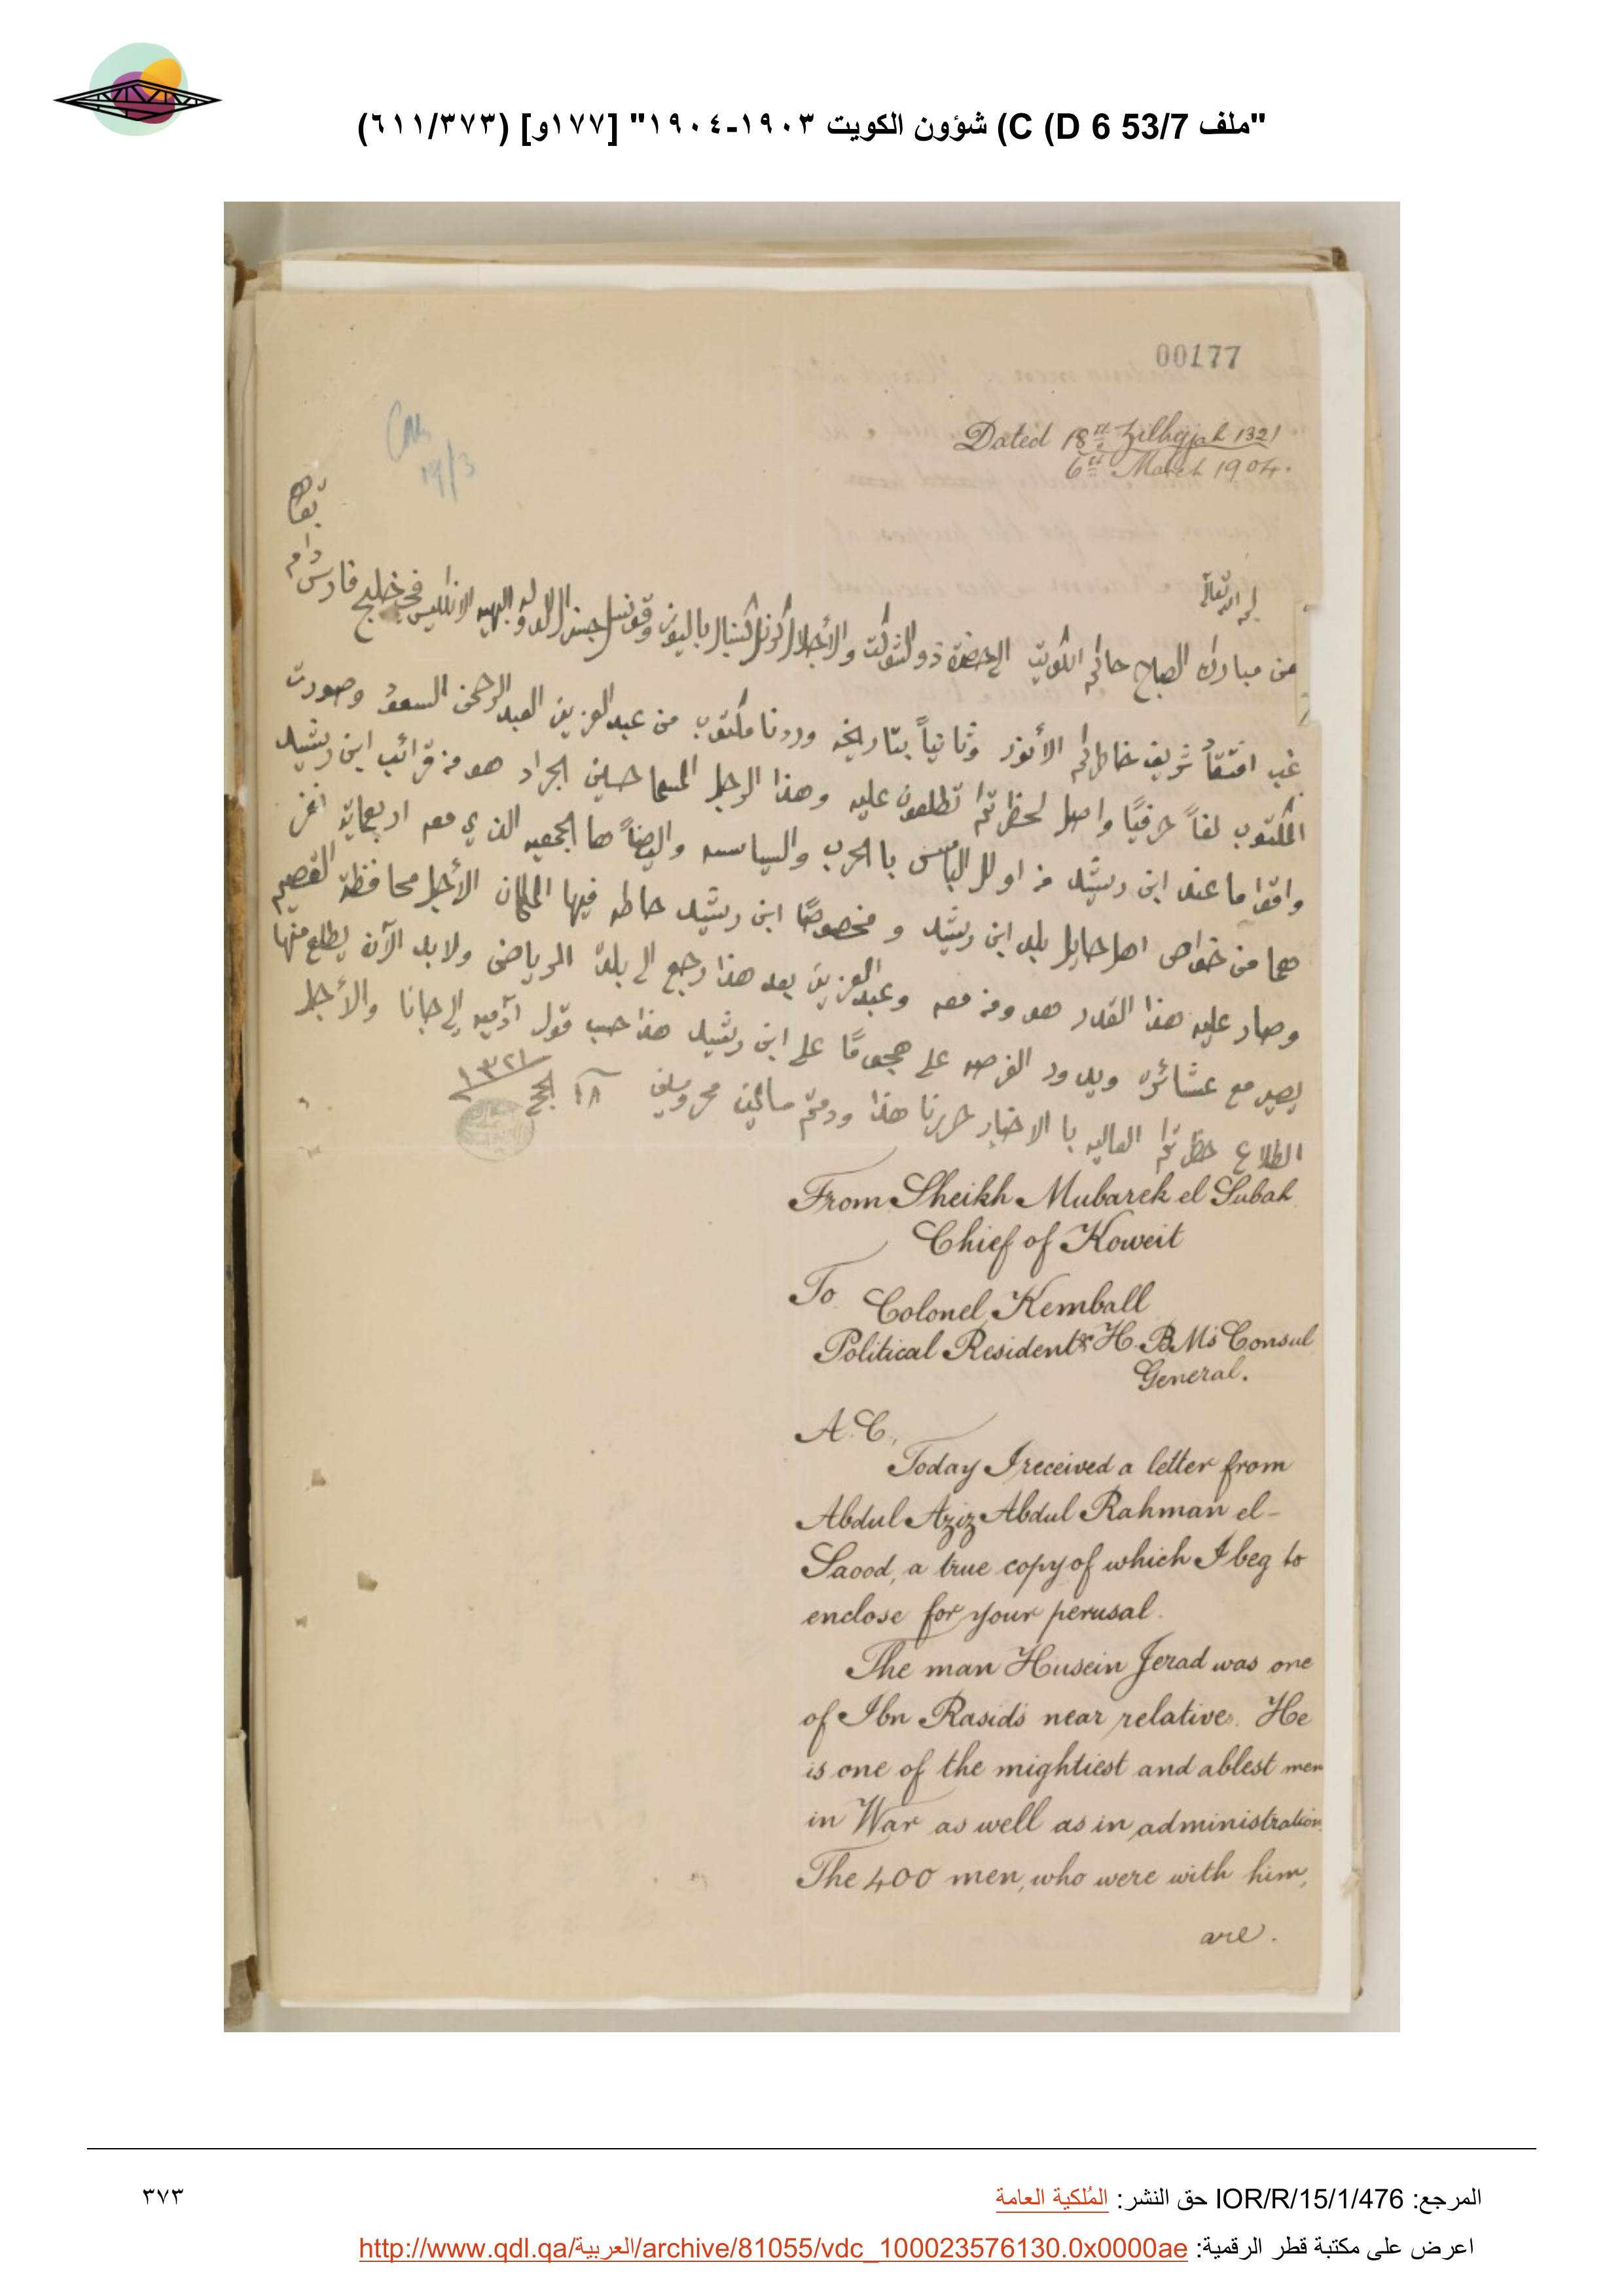 "ملف 53/7 C (D 6) شؤون الكويت ١٩٠٣-١٩٠٤" [١٧٧و] (٦١١/٣٧٣)
00177
Dated 18th Zilhejjah 1321
6th March 1904.
19/3
بقاه
دام
لله تعالى
من مبارك الصباح حاكم الكويت الى حضرة ذو الشوكت والأجلال كرنل كنبال باليوز وقونسل جنرال الدولة البهيه الانكليس في خليج فارس
غب افتقاد شريف خاطركم الأنور وثانياً بتاريخه وردنا مكتوب من عبدالعزيز العبدالرحمن السعود وصورت
المكتوب لفاً حرفياً واصل لحظرتكم تطلعون عليه وهذا الرجل المسما حسين الجراد هو من قرائب ابن رشيد
واقوا ما عند ابن رشيد من اولل الباس بالحرب والسياسه واليضاً ها الجمعيه الذي معه اربعماية نفر
هما من خواص اهل حايل بلد ابن رشيد ومخصوصاً ابن رشيد حاطه فيها المكان الأجل محافظة القصيم
وصار عليه هذا القدر هو ومن معه وعبدالعزيز بعد هذا رجع الى بلده الرياض ولابد الآن يطلع منها
يصير مع عشائره ويدور الفرصه على هجوماً على ابن رشيد هذا حسب قول آدميه الى جانا والأجل
اطلاع حظرتكم العاليه با الاخبار حررنا هذا ودمتم سالمين محروسين ١٨ الحج ١٣٢١
From Sheikh Mubarek el Subah
Chief of Koweit
To Colonel Kemball
Political Resident & H.B.M's Consul
General.
A.C.,
Today I received a letter from
Abdul Aziz Abdul Rahman el-
Saood, a true copy of which I beg to
enclose for your perusal.
The man Husein Jerad was one
of Ibn Rasid's near relatives. He
is one of the mightiest and ablest men
in War as well as in administration.
The 400 men, who were with him,
are.
المرجع: IOR/R/15/1/476 حق النشر: المُلكية العامة
٣٧٣
اعرض على مكتبة قطر الرقمية: http://www.qdl.qa/العربية/archive/81055/vdc_100023576130.0x0000ae